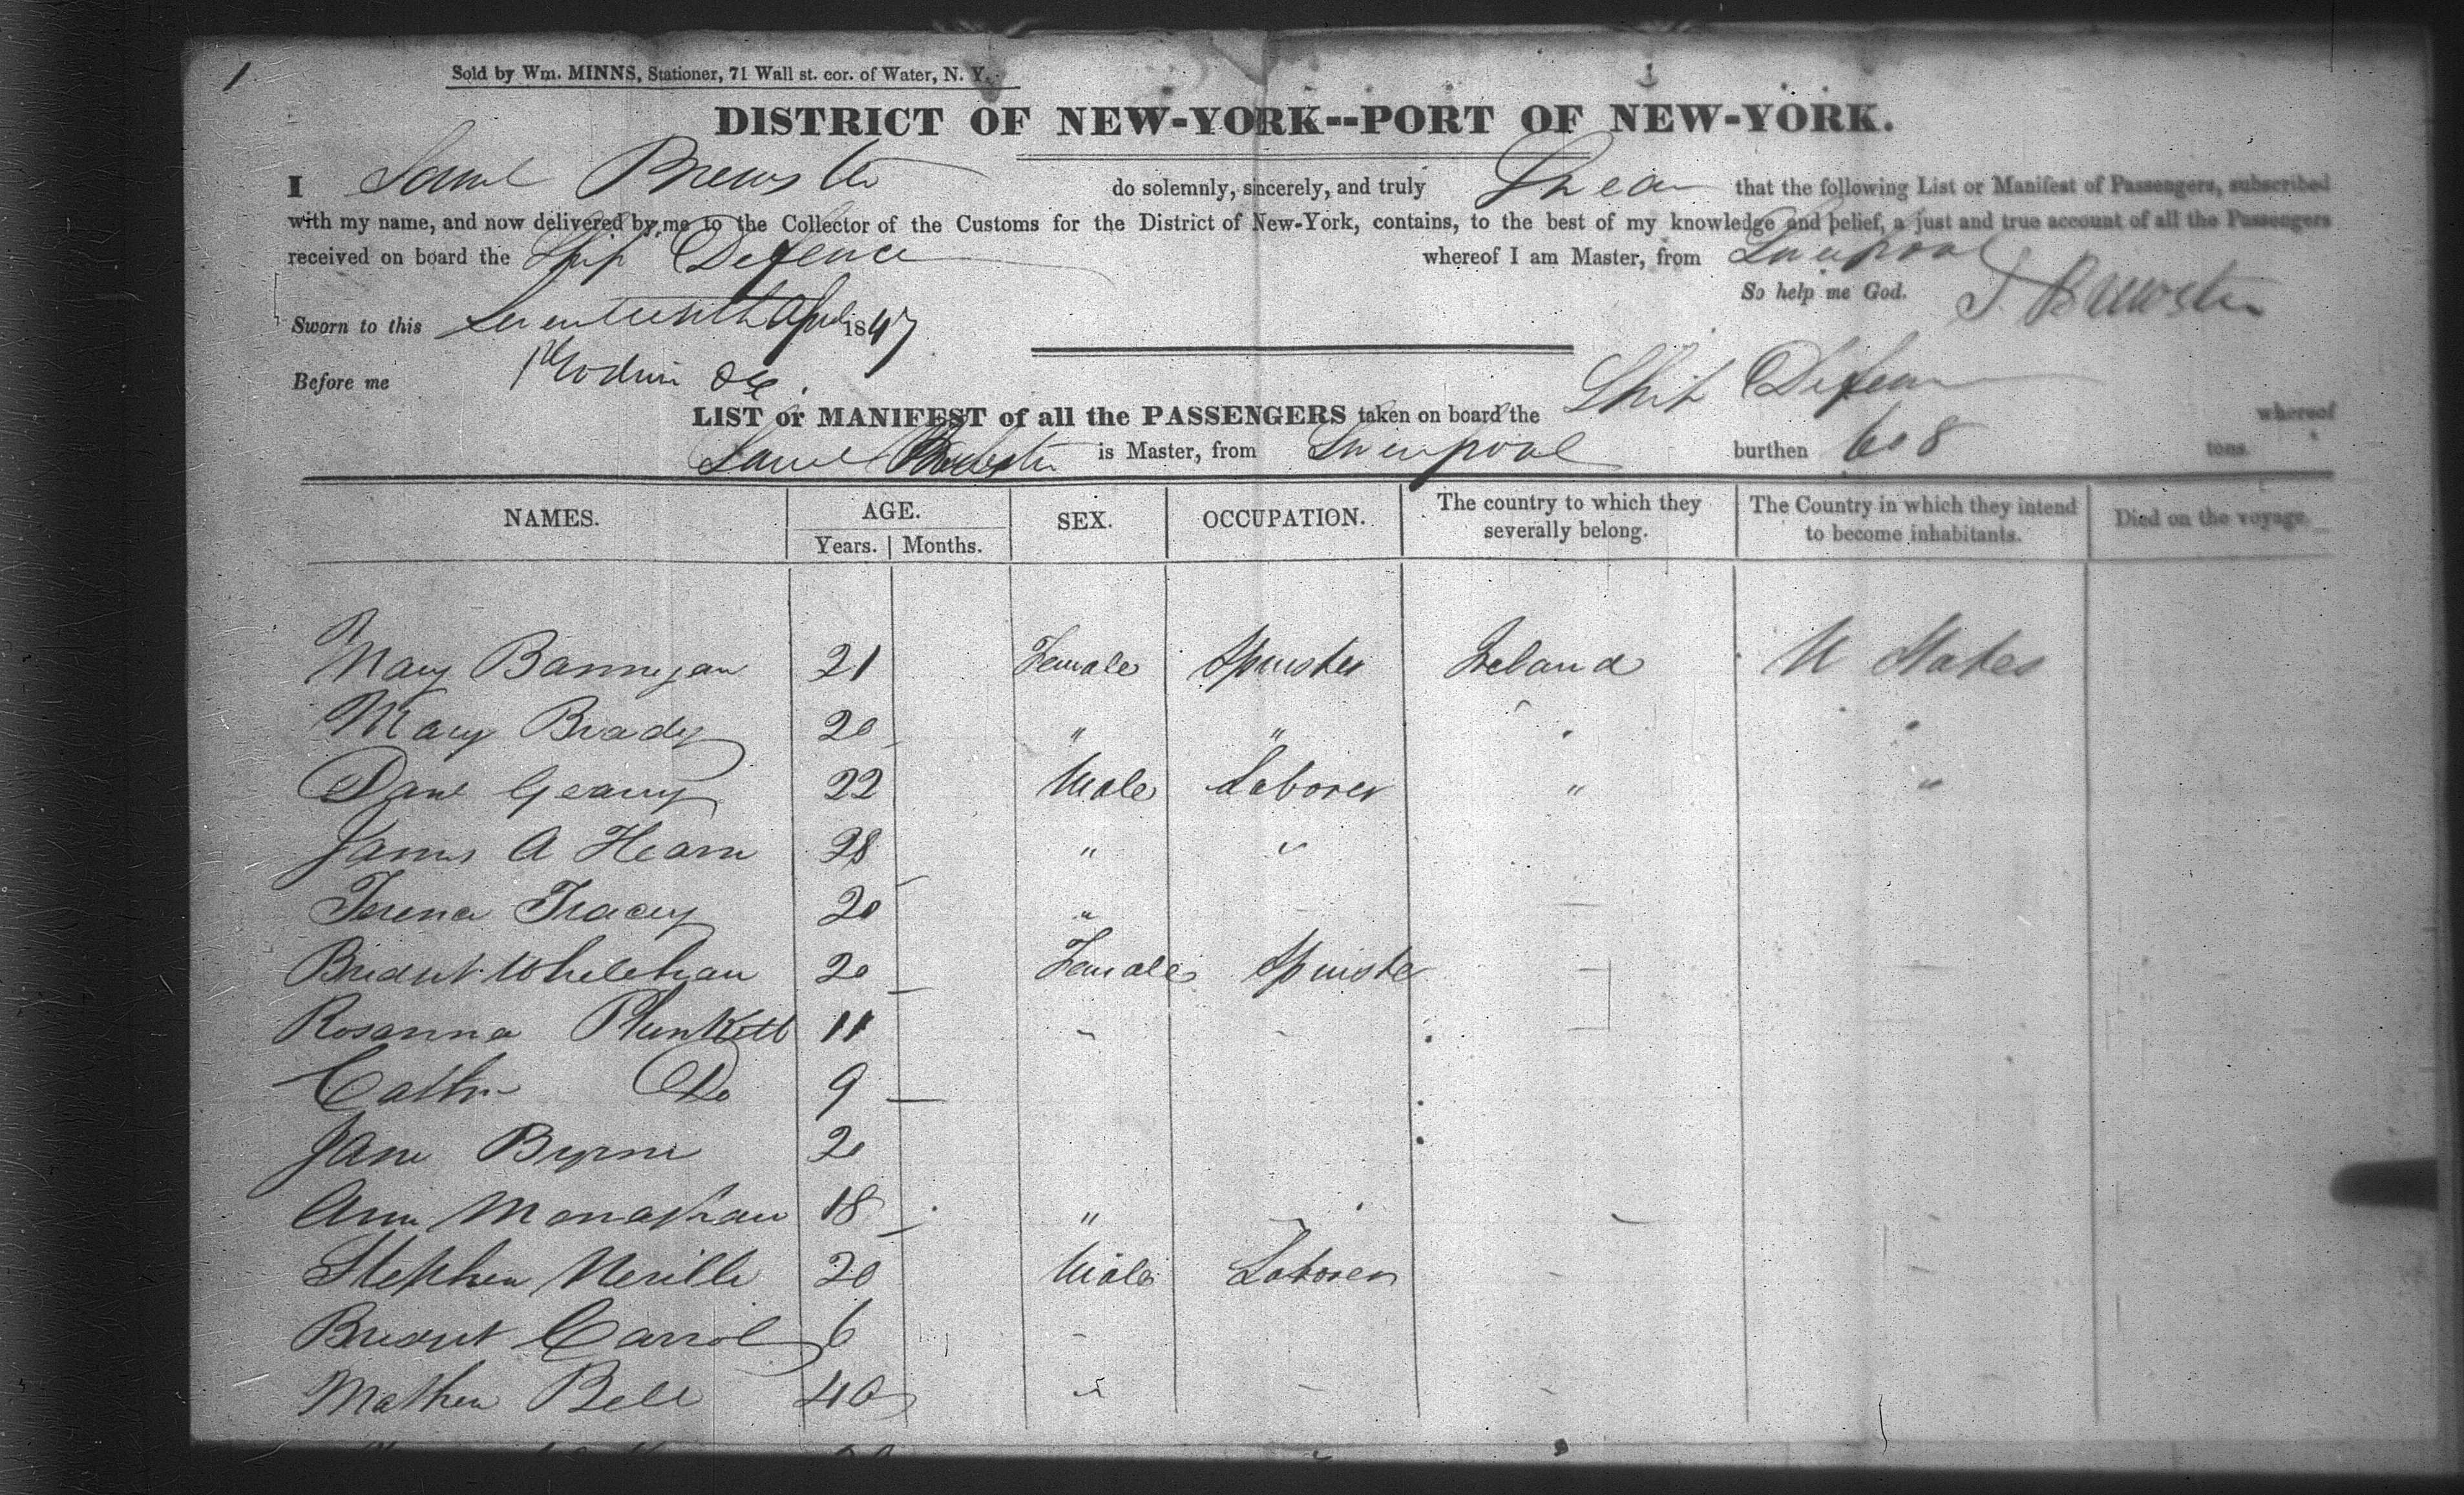 1
Sold by Wm. MINNS, Stationer, 71 Wall st. cor. of Water, N. Y.
DISTRICT OF NEW-YORK--PORT OF NEW-YORK.
I Saml Brewster do solemnly, sincerely, and truly Swear that the following List or Manifest of Passengers, subscribed
with my name, and now delivered by me to the Collector of the Customs for the District of New-York, contains, to the best of my knowledge and belief, a just and true account of all the Passengers
received on board the Ship Defence whereof I am Master, from Liverpool
So help me God. S Brewster
Sworn to this Seventeenth April 1847
Before me
LIST or MANIFEST of all the PASSENGERS taken on board the Ship Defence whereof
Saml Brewster is Master, from Liverpool burthen 608 tons.
NAMES. AGE. SEX. OCCUPATION. The country to which they severally belong. The Country in which they intend to become inhabitants. Died on the voyage
Years. Months.
Mary Bannigan 21 Female Spinster Ireland U States
Mary Brady 20 " " " "
Danl Geary 22 Male Laborer " "
James A Hearn 28 " "
Terence Tracey 20 "
Bridget Whelehan 20 Female Spinster
Rosanna Plunkett 11
Cathn Do 9
Jane Byrne 20
Ann Monaghan 18 "
Stephen Neville 20 Male Laborer
Bridget Carrol 6
Mathew Bell 40 "